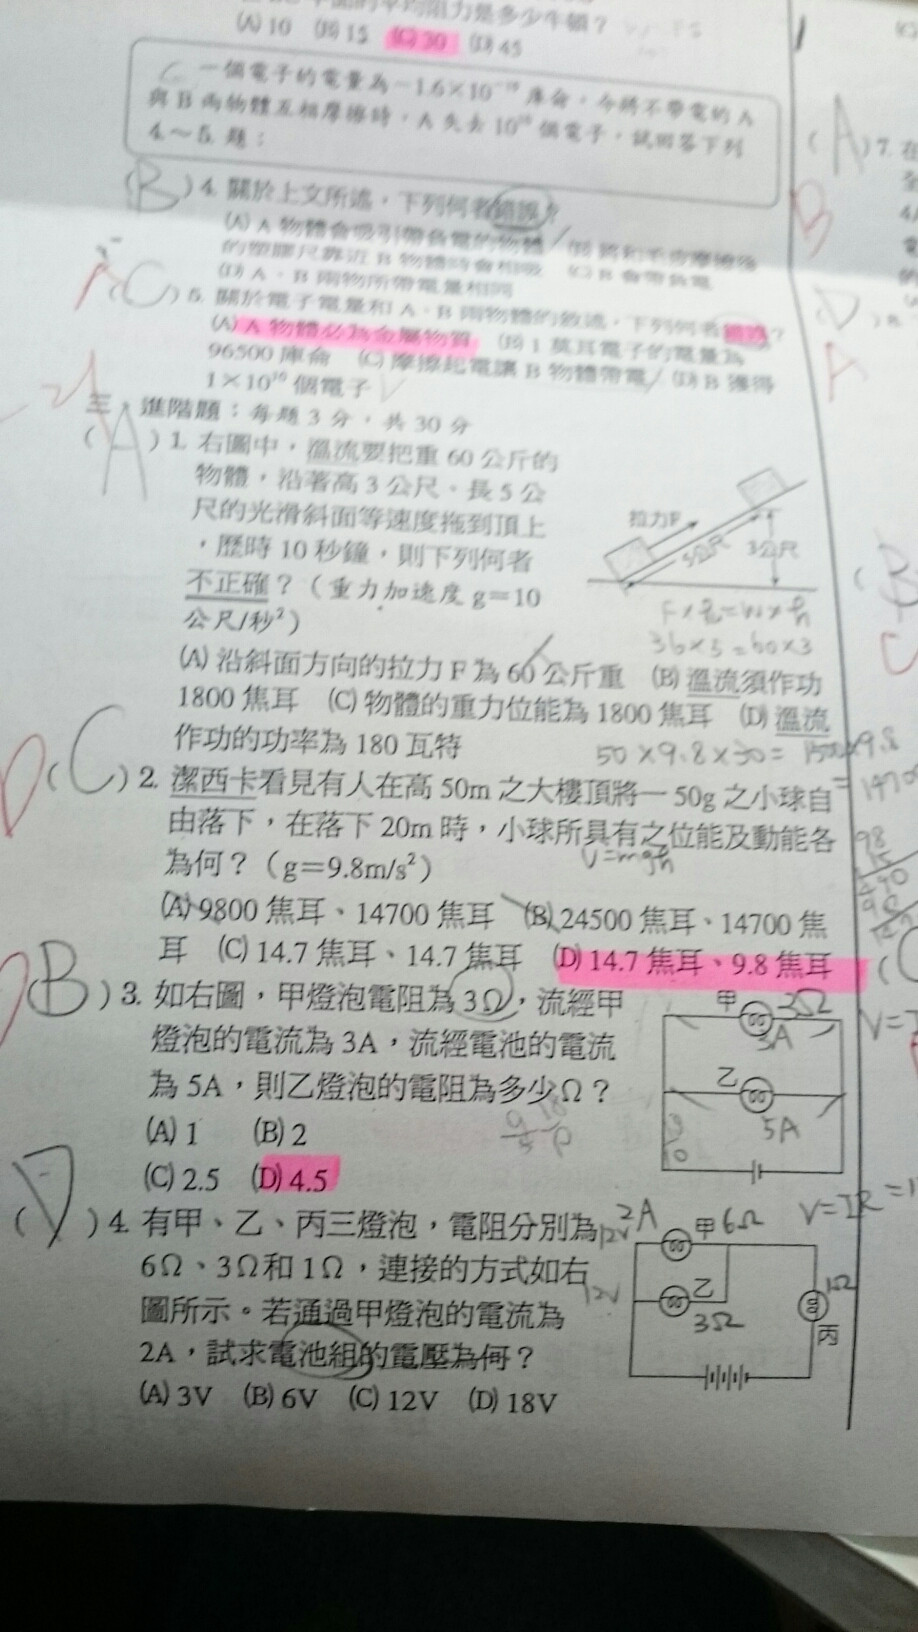 (A) 10 (B) 15 (C) 30 (D) 45
一個電子的電量為−1.6×10⁻¹⁹庫侖，今將不帶電的A
與B兩物體互相摩擦時，A失去10¹⁰個電子，試回答下列
4.～5.題：
(B) 4. 關於上文所述，下列何者錯誤？
(A) A物體會吸引帶負電的物體 (B) 將和毛皮摩擦後
的塑膠尺靠近B物體時會相吸 (C) B會帶負電
(D) A、B兩物所帶電量相同
(C) 5. 關於電子電量和A、B兩物體的敘述，下列何者錯誤？
A
(A) A物體必為金屬物質 (B) 1莫耳電子的電量為
96500庫侖 (C) 摩擦起電讓B物體帶電 (D) B獲得
1×10¹⁰個電子
三、進階題：每題3分，共30分
(A) 1. 右圖中，溫流要把重60公斤的
物體，沿著高3公尺、長5公
尺的光滑斜面等速度拖到頂上
，歷時10秒鐘，則下列何者
不正確？（重力加速度g=10
公尺/秒²）
拉力F
5公尺
3公尺
36×5=60×3
(A) 沿斜面方向的拉力F為60公斤重 (B) 溫流須作功
1800焦耳 (C) 物體的重力位能為1800焦耳 (D) 溫流
作功的功率為180瓦特
50×9.8×30=1500×9.8
D
(C) 2. 潔西卡看見有人在高50m之大樓頂將一50g之小球自
由落下，在落下20m時，小球所具有之位能及動能各
為何？（g=9.8m/s²）
U=mgh
(A) 9800焦耳、14700焦耳 (B) 24500焦耳、14700焦
耳 (C) 14.7焦耳、14.7焦耳 (D) 14.7焦耳、9.8焦耳
(B) 3. 如右圖，甲燈泡電阻為3Ω，流經甲
燈泡的電流為3A，流經電池的電流
為5A，則乙燈泡的電阻為多少Ω？
(A) 1 (B) 2
(C) 2.5 (D) 4.5
甲 3Ω
3A
乙
5A
(D) 4. 有甲、乙、丙三燈泡，電阻分別為
6Ω、3Ω和1Ω，連接的方式如右
圖所示。若通過甲燈泡的電流為
2A，試求電池組的電壓為何？
(A) 3V (B) 6V (C) 12V (D) 18V
2A
12V
甲6Ω
V=IR
12V
乙
3Ω
1Ω
丙
(A) 7. 在
B
(D) 8.
A
(B
C